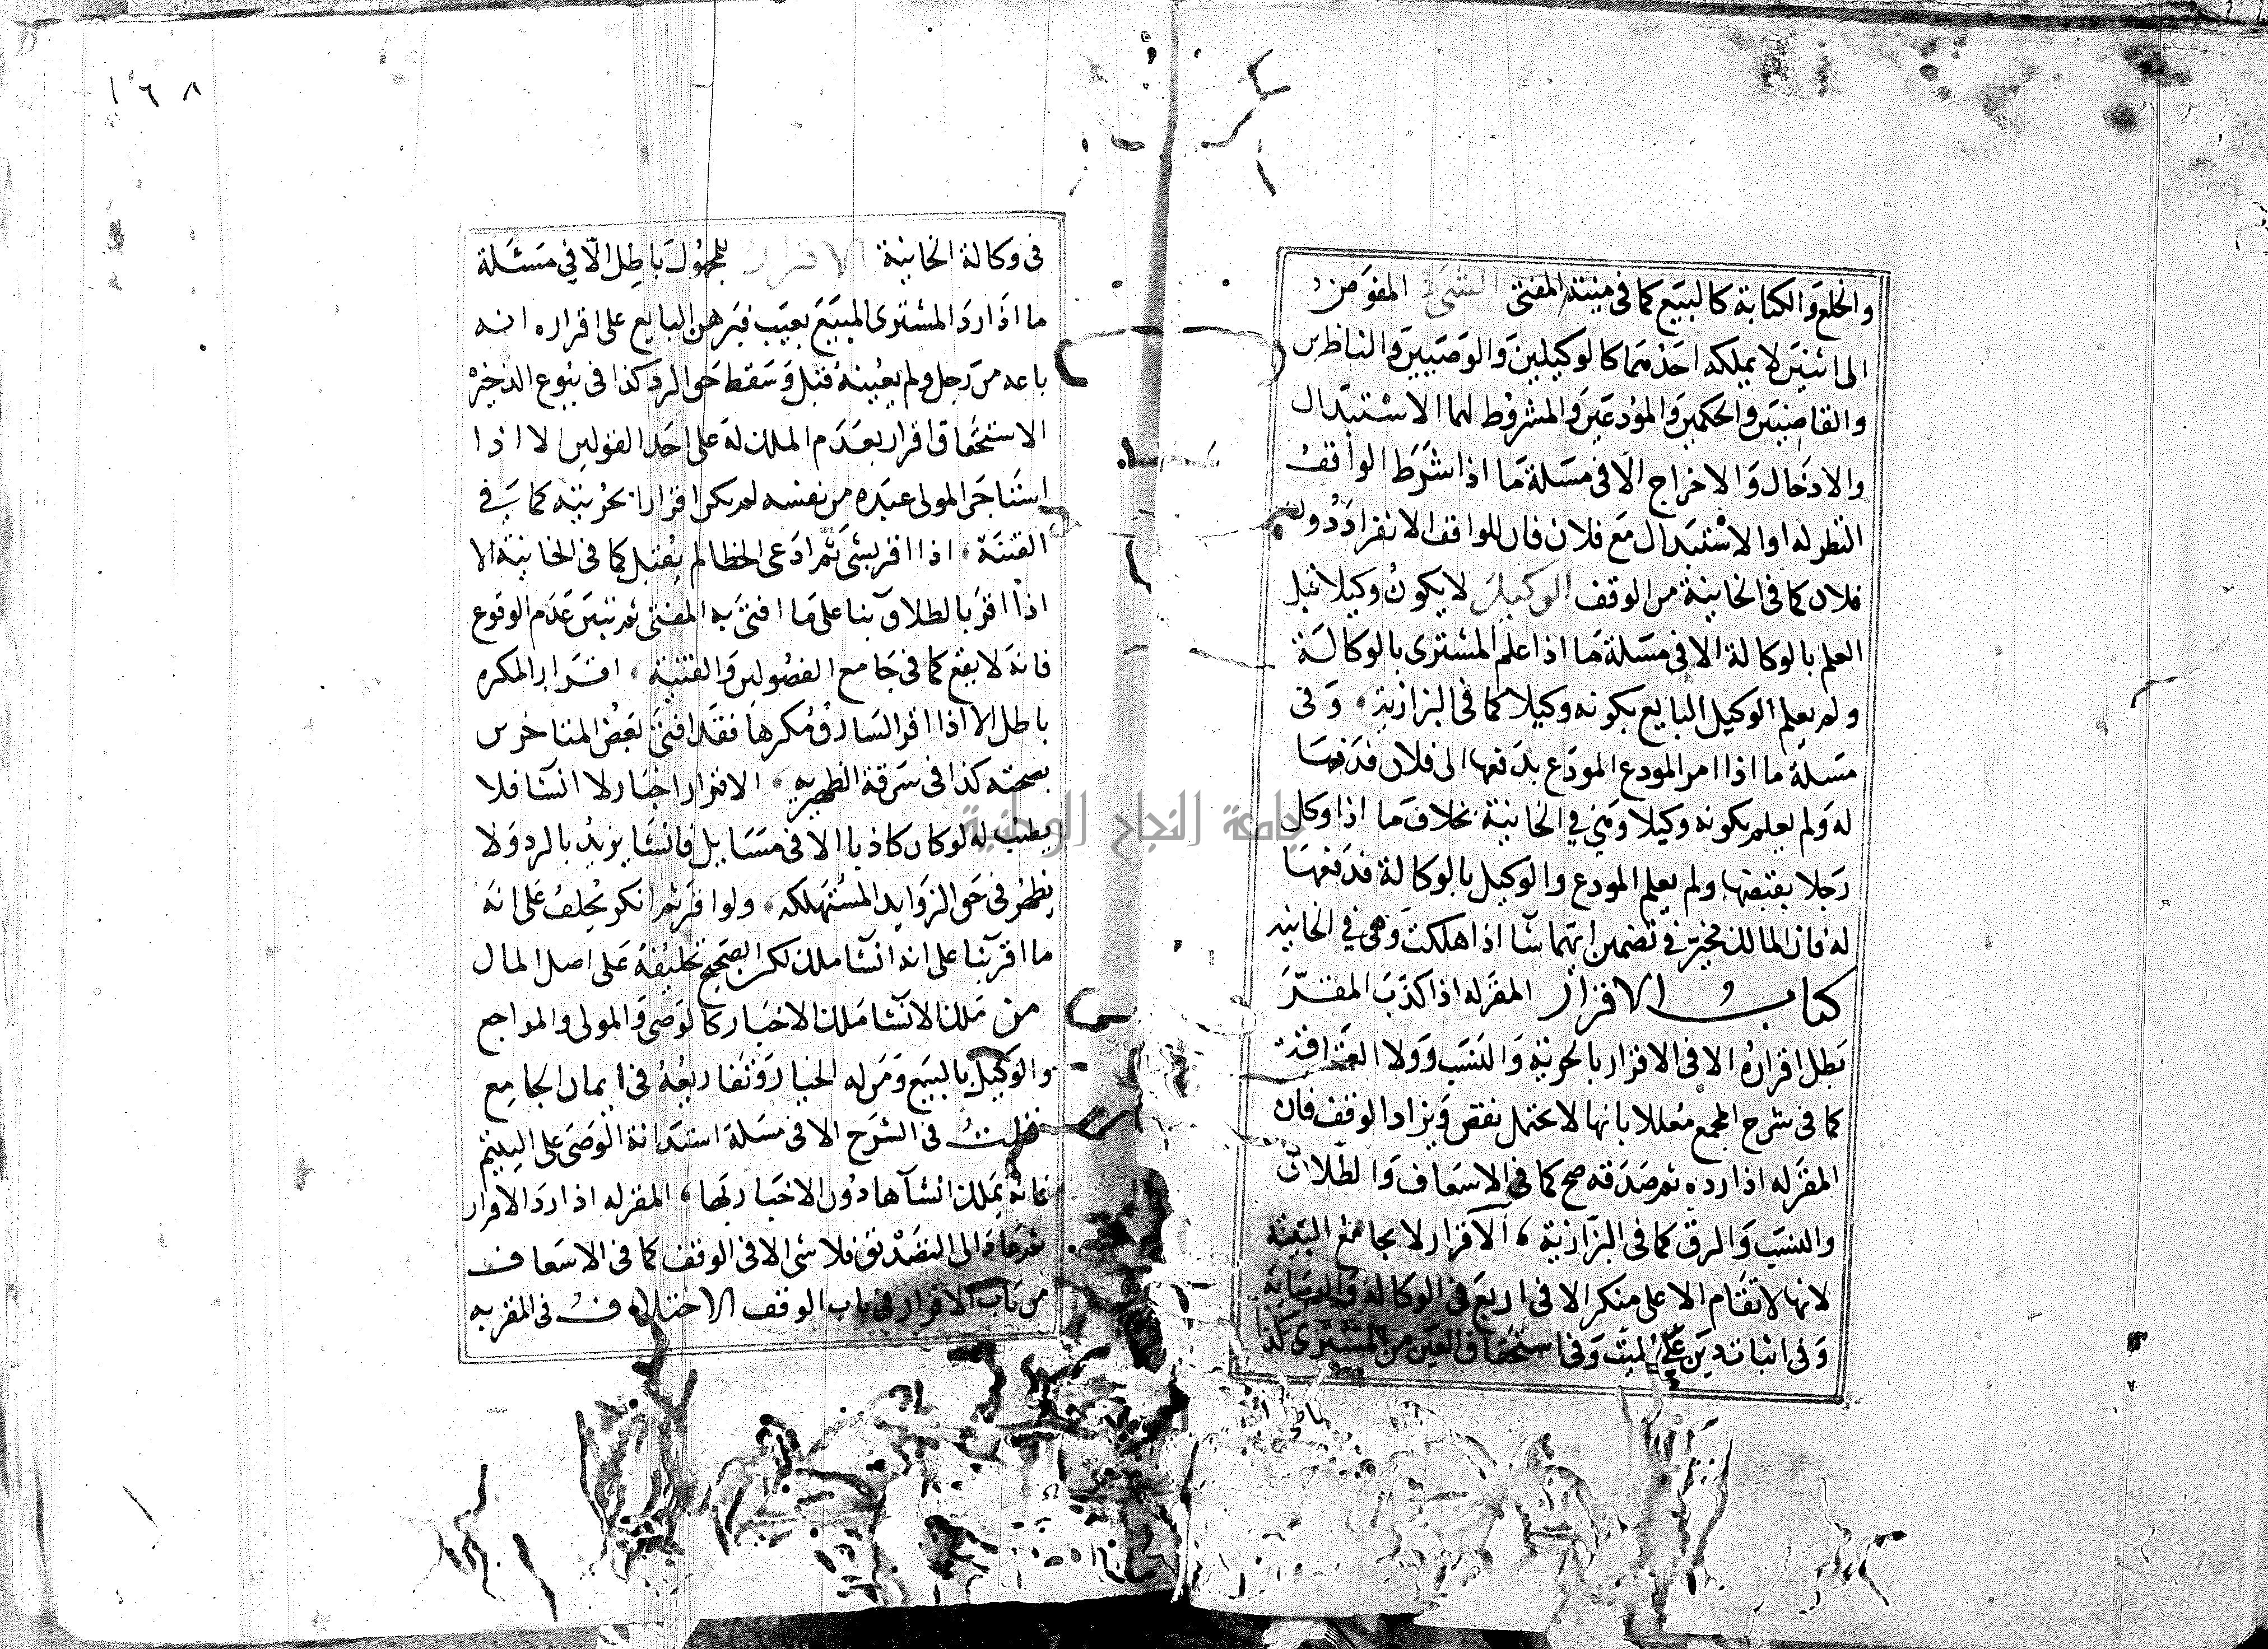 والخلع والكتابة كالبيع كما في منية المفتي الشيء المفوض
الى اثنين لا يملكه احدهما كالوكيلين والوصيين والناظرين
والقاضيين والحكمين والمودعين والمشروط لهما الاستبدال
والادخال والاخراج الا في مسلة ما اذا شرط الواقف
النظر له او الاستبدال مع فلان فان للواقف الانفراد دون
فلان كما في الخانية من الوقف الوكيل لا يكون وكيلا قبل
العلم بالوكالة الا في مسلة ما اذا علم المشترى بالوكالة
ولم يعلم الوكيل البايع بكونه وكيلا كما في البزازية وفى
مسلة ما اذا امر المودع المودع بدفعها الى فلان فدفعها
له ولم يعلم بكونه وكيلا وهي في الخانية بخلاف ما اذا وكل
رجلا بقبضها ولم يعلم المودع والوكيل بالوكالة فدفعها
له فان المالك مخير في تضمين ايهما شا اذا هلكت وهي في الخانية
كتاب الاقرار المقر له اذا كذب المقر
بطل اقراره الا في الاقرار بالحرية والنسب وولا العتاقة
كما في شرح المجمع معللا بانها لا تحتمل نقض ويزاد الوقف فان
المقر له اذا رده ثم صدقه صح كما في الاسعاف والطلاق
والنسب والرق كما في البزازية الاقرار لا يجامع البينة
لانها لا تقام الا على منكر الا في اربع في الوكالة والوصاية
وفى اثبات دين على الميت وفى استحقاق العين من المشترى كذا
فى وكالة الخانية الاقرار للمجهول باطل الا في مسئلة
ما اذا رد المشترى المبيع بعيب فبرهن البايع على اقراره انه
باعه من رجل ولم يعينه قبل وسقط حق الرد كذا فى بيوع الذخيرة
الاستحقاق اقرار بعدم الملك له على احد القولين لا اذا
استاجر المولى عبده من نفسه لم يكن اقرارا بحريته كما في
القنية اذا اقر بشى ثم ادعى الخطا لم يقبل كما في الخانية الا
اذا اقر بالطلاق بنا على ما افتى به المفتى ثم تبين عدم الوقوع
فانه لا يقع كما في جامع الفصولين والقنية اقرار المكره
باطل الا اذا اقر السارق مكرها فقد افتى بعض المتاخرين
بصحته كذا في سرقة الظهيريه الاقرار اخبار لا انشا فلا
يطيب له لو كان كاذبا الا في مسايل فانشا يرتد بالرد ولا
يظهر في حق الزوايد المستهلكه ولو اقر ثم انكر يحلف على انه
ما اقر بنا على انه انشا ملك لكن الصحيح تحليفه على اصل المال
من ملك الانشا ملك الاخبار كالوصى والمولى والمراجع
والوكيل بالبيع ومن له الخيار وتفاريعه فى ايمان الجامع
قلت فى الشرح الا فى مسلة استدانة الوصى على اليتيم
فانه يملك انشآها دون الاخبار بها المقر له اذا رد الاقرار
ثم عاد الى التصديق فلا شى الا في الوقف كما في الاسعاف
من باب الاقرار في باب الوقف الاختلاف فى المقر به
١٦٨
جامعة النجاح الوطنية